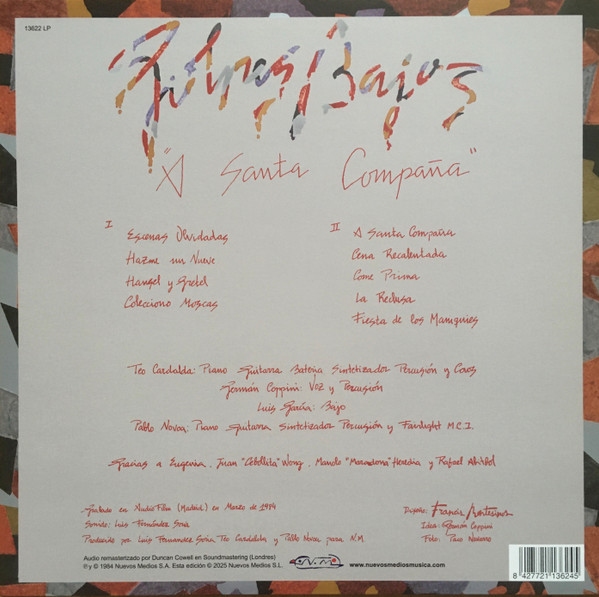 13622 LP
Golpes Bajos
"A Santa Compaña"
I
Escenas Olvidadas
Hazme un Nueve
Hansel y Gretel
Colecciono Moscas
II
A Santa Compaña
Cena Recalentada
Come Prima
La Reclusa
Fiesta de los Maniquies
Teo Cardalda: Piano Guitarra Bateria Sintetizador Percusión y Coros
Germán Coppini: Voz y Percusión
Luis García: Bajo
Pablo Novoa: Piano Guitarra Sintetizador Percusión y Fairlight M.C.I.
Gracias a Eugenia, Juan "Cebollita" Wong, Manolo "Maradona" Heredia y Rafael Abitbol
Grabado en Audiofilm (Madrid) en Marzo de 1984
Sonido: Luis Fernández Soria
Producido por Luis Fernandez Soria, Teo Cardalda y Pablo Novoa para N.M
Diseño: Francis Montesinos
Idea: Germán Coppini
Foto: Paco Navarro
Audio remasterizado por Duncan Cowell en Soundmastering (Londres)
℗ y © 1984 Nuevos Medios S.A. Esta edición © 2025 Nuevos Medios S.L.
N.M
www.nuevosmediosmusica.com
8 427721 136245